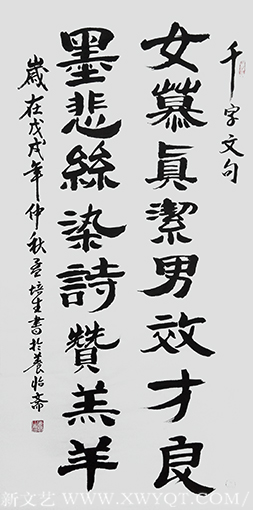 千字文句
女慕眞潔男效才良
墨悲絲染詩贊羔羊
歲在戊戌年仲秋培生書於養怡斋
新文艺 WWW.XWYQT.COM